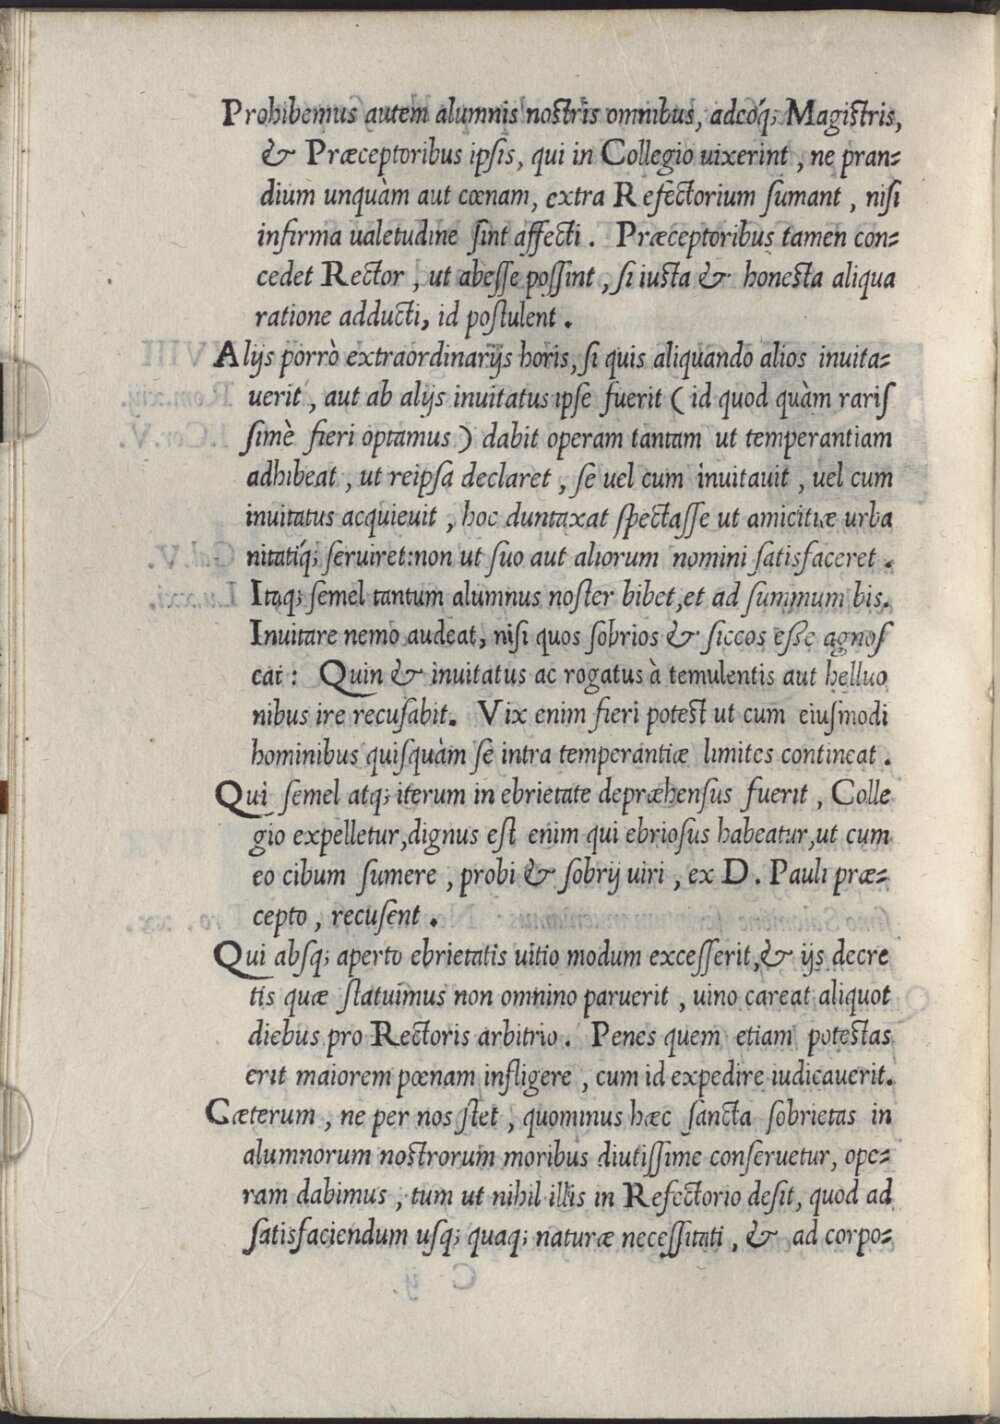 Prohibemus autem alumnis nostris omnibus, adeóq; Magistris,
& Præceptoribus ipsis, qui in Collegio uixerint, ne pran-
dium unquàm aut cœnam, extra Refectorium sumant, nisi
infirma ualetudine sint affecti. Præceptoribus tamen con-
cedet Rector, ut abesse possint, si iusta & honesta aliqua
ratione adducti, id postulent.
Alijs porrò extraordinarijs horis, si quis aliquando alios inuita-
uerit, aut ab alijs inuitatus ipse fuerit (id quod quàm raris
simè fieri optamus) dabit operam tantam ut temperantiam
adhibeat, ut reipsa declaret, se uel cum inuitauit, uel cum
inuitatus acquieuit, hoc duntaxat spectasse ut amicitiæ urba
nitatiq́; seruiret: non ut suo aut aliorum nomini satisfaceret.
Itaq; semel tantum alumnus noster bibet, et ad summum bis.
Inuitare nemo audeat, nisi quos sobrios & siccos esse agnos
cat: Quin & inuitatus ac rogatus à temulentis aut helluo
nibus ire recusabit. Vix enim fieri potest ut cum eiusmodi
hominibus quisquàm se intra temperantiæ limites contineat.
Qui semel atq; iterum in ebrietate depræhensus fuerit, Colle
gio expelletur, dignus est enim qui ebriosus habeatur, ut cum
eo cibum sumere, probi & sobrij uiri, ex D. Pauli præ-
cepto, recusent.
Qui absq; aperto ebrietatis uitio modum excesserit, & ijs decre
tis quæ statuimus non omnino paruerit, uino careat aliquot
diebus pro Rectoris arbitrio. Penes quem etiam potestas
erit maiorem pœnam infligere, cum id expedire iudicauerit.
Cæterum, ne per nos stet, quominus hæc sancta sobrietas in
alumnorum nostrorum moribus diutissime conseruetur, ope-
ram dabimus, tum ut nihil illis in Refectorio desit, quod ad
satisfaciendum usq; quaq; naturæ necessitati, & ad corpo-